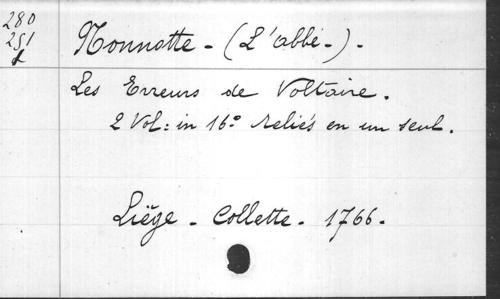 280
251
Nonnotte - (L'abbé -) .
Les Erreurs de Voltaire .
2 Vol : in 16° reliés en un seul .
Liège - Collette - 1766 .